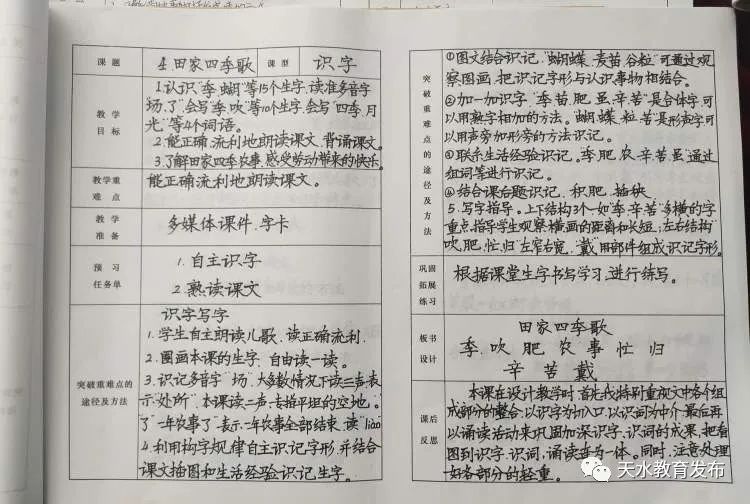 课 题
4 田家四季歌
课 型
识 字
教 学
目 标
1.认识“季、蝴”等15个生字,读准多音字
“场、了”会写“季、吹”等10个生字,会写“四季、月
光”等4个词语。
2.能正确流利地朗读课文,背诵课文。
3.了解田家四季农事,感受劳动带来的快乐。
教学重
难 点
能正确流利地朗读课文。
教 学
准 备
多媒体课件、字卡
预 习
任务单
1.自主识字
2.熟读课文
突破重难点的
途径及方法
识字写字
1.学生自主朗读儿歌,读正确流利.
2.圈画本课的生字,自由读一读。
3.识记多音字“场”,大多数情况下读三声表
示“处所”,本课读二声,专指平坦的空地。
了“一年农事了”表示一年农事全部结束,读“liǎo”
4.利用构字规律自主识记字形,并结合
课文插图和生活经验识记生字.
突
破
重
难
点
的
途
径
及
方
法
①图文结合识记.“蝴蝶、麦苗、谷粒”可通过观
察图画,把识记字形与认识事物相结合。
②加一加识字.“季、苗、肥、虽、辛、苦”是合体字,可
以用熟字相加的方法。“蝴、蝶、粒、苦”是形声字可
以用声旁加形旁的方法识记。
③联系生活经验识记。“季、肥、农、辛、苦、虽”通过
组词等进行识记。
④结合课后题识记.积肥、插秧
5.写字指导。上下结构3个一如“季、辛、苦”多横的字
重点,指导学生观察横画的距离和长短;左右结构
“吹、肥、忙、归”左窄右宽,“戴”用部件组成识记字形。
巩固
拓展
练习
根据课堂生字书写学习,进行练写。
板书
设计
田家四季歌
季 吹 肥 农 事 忙 归
辛 苦 戴
课后
反思
本课在设计教学时首先我特别重视文中各个组
成部分的整合,以识字为切入口,以识词为中介,最后再
以诵读活动来巩固加深识字、识词的成果,把看
图到识字、识词,诵读连为一体。同时,注意处理
好各部分的轻重。
天水教育发布